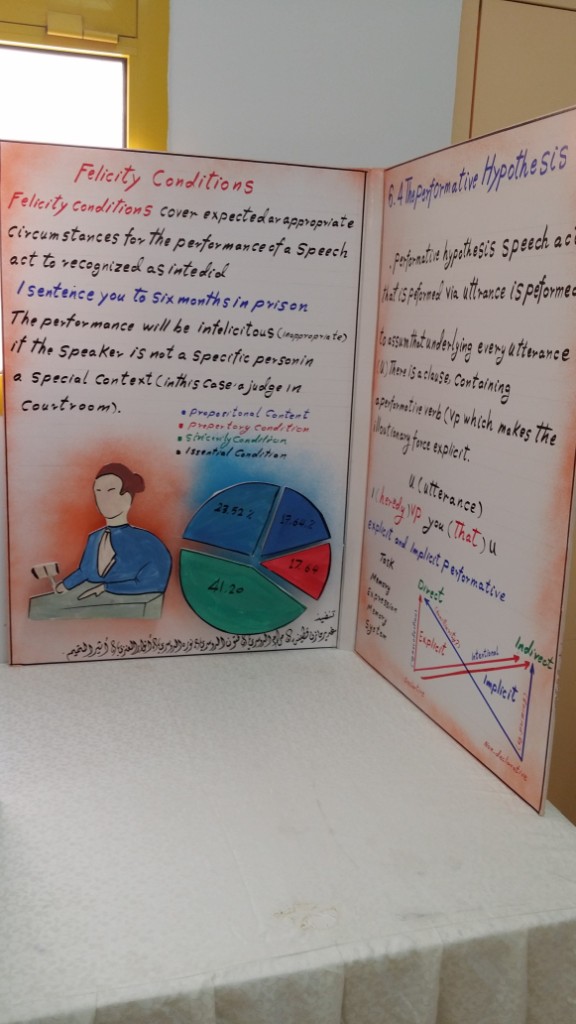 Felicity Conditions
Felicity conditions cover expected or appropriate
Circumstances for the performance of a speech
act to recognized as intedid
I sentence you to six months in prison
The performance will be infelicitous (inappropriate)
if the speaker is not a specific person in
a special context (in this case: a judge in
Courtroom).
Propositonal Content
Prepertory condition
Sincirly Condition
Issential Condition
23.52%
17.64%
17.64
41.20
تنفيذ
6.4 The performative Hypothesis
performative hypothesis speech act
that is peformed via uttrance is peformed
to assum that underlying every utterance
(U) There is a clause, containing
a performative verb (VP which makes the
illoutionary force explicit.
U (utterance)
I (heredy) VP you (That) U
explicit and Implicit performative
Task
Memory
Expression
Memory
System
Direct
Explicit
Intentional
Indirect
Implicit